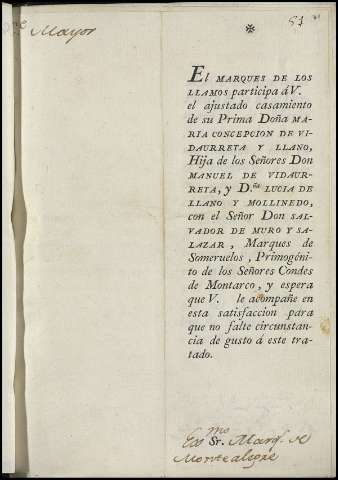 Mayor
57
El MARQUES DE LOS
LLAMOS participa á V.
el ajustado casamiento
de su Prima Doña MA-
RIA CONCEPCION DE VI-
DAURRETA Y LLANO,
Hija de los Señores Don
MANUEL DE VIDAUR-
RETA, y D.ña LUCIA DE
LLANO Y MOLLINEDO,
con el Señor Don SAL-
VADOR DE MURO Y SA-
LAZAR, Marques de
Someruelos, Primogéni-
to de los Señores Condes
de Montarco, y espera
que V. le acompañe en
esta satisfaccion para
que no falte circunstan-
cia de gusto á este tra-
tado.
Exc.mo Sr. Marq.s de
Montealegre